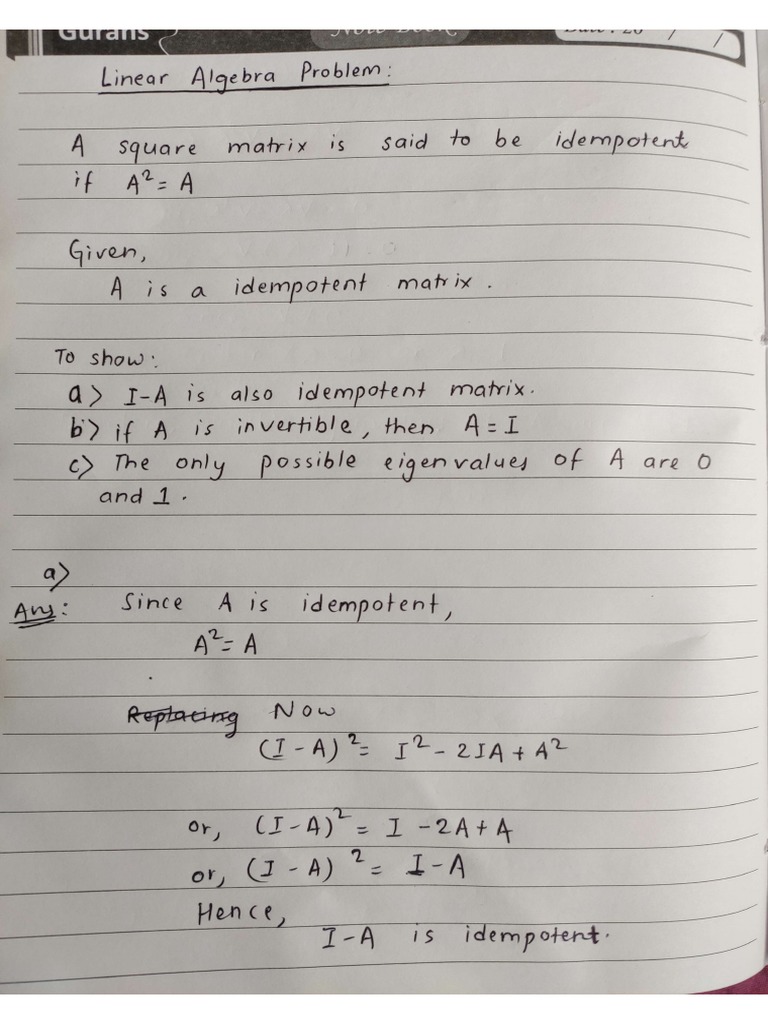 Gurans Note Book Date: 20 / /
Linear Algebra Problem:
A square matrix is said to be idempotent
if A² = A
Given,
A is a idempotent matrix.
To show:
a> I-A is also idempotent matrix.
b> if A is invertible, then A = I
c> The only possible eigenvalues of A are 0
and 1.
a>
Ans: Since A is idempotent,
A² = A
Replacing Now
(I - A)² = I² - 2IA + A²
or, (I - A)² = I - 2A + A
or, (I - A)² = I - A
Hence,
I-A is idempotent.